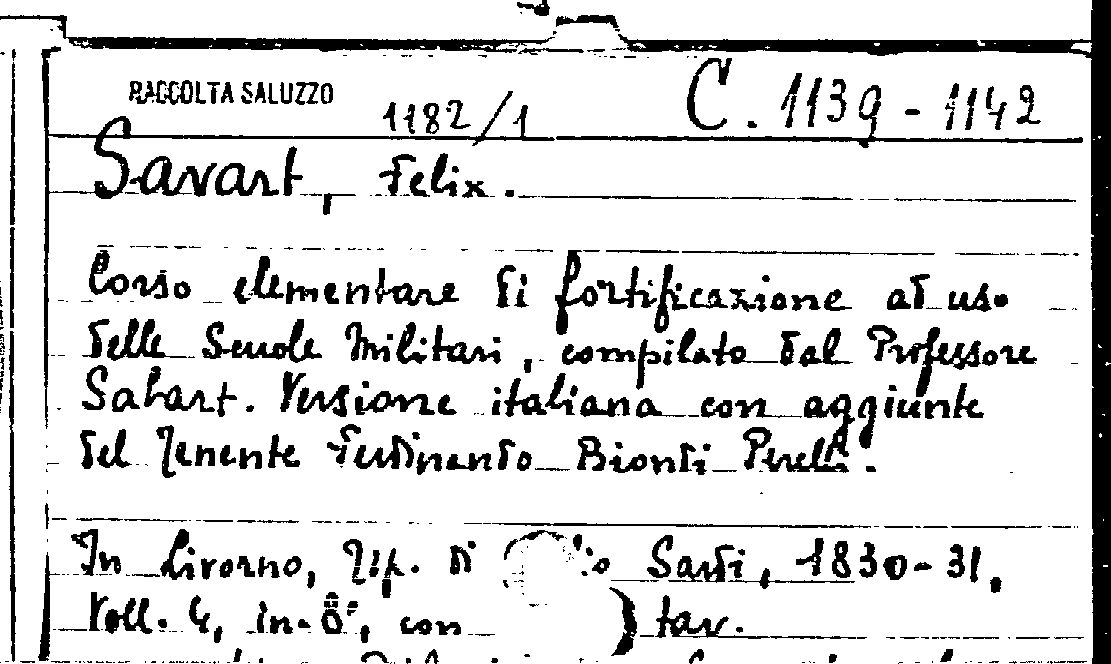 RACCOLTA SALUZZO
1182/1
C. 1139-1142
Savart, Felix.
Corso elementare di fortificazione ad uso
delle Scuole Militari, compilato dal Professore
Sabart. Versione italiana con aggiunte
del Tenente Ferdinando Biondi Perelli.
In Livorno, Tip. di Sardi, 1830-31,
Voll. 4, in-8°, con ) tav.